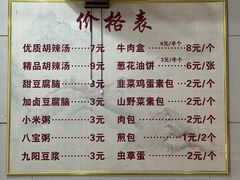 价格表
优质胡辣汤——7元
精品胡辣汤——9元
甜豆腐脑——3元
加卤豆腐脑——3元
小米粥——3元
八宝粥——3元
九阳豆浆——3元
4元/半个
牛肉盒——8元/个
3元/半个
葱花油饼——6元/张
韭菜鸡蛋素包——2元/个
山野菜素包——2元/个
肉包——2元/个
煎包——1元/2个
虫草蛋——2元/个